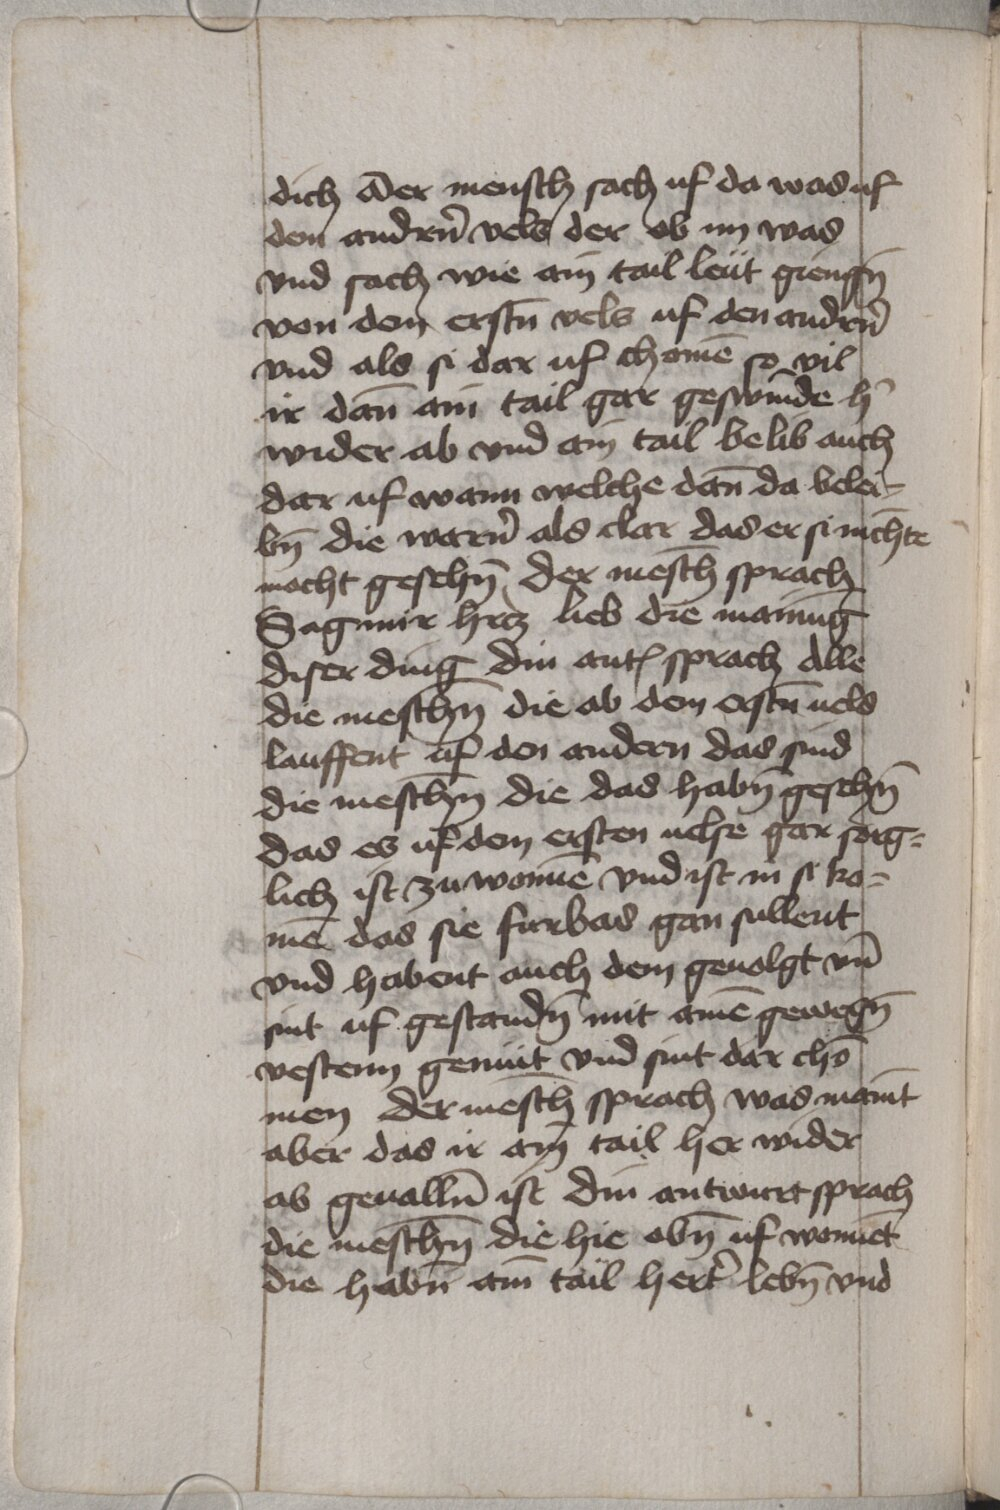 dich Der mensch sach uf da was uf
den andern̄ vels der ob im was
vnd sach wie ain tail leüt giengn̄
von dem erstn̄ vels uf den andern̄
vnd als si dar uf chomē so vil
ir dan̄ ain tail gar geswinde h̓
wider ab vnd ain tail belib auch
dar uf wann welche dan̄ da belei-
bn̄ die warn̄ als clar das er si nichte
mocht gesehn̄ Der mēsch sprach
Sag mir hrcz lieb die mainūg
diser ding Diu antʼ sprach Alle
die meschn̄ die ab dem erstn̄ uels
lauffent uf den andern das sind
die meschn̄ die das habn̄ gesehn̄
das es uf dem ersten uelse gar sorg-
lich ist zu wonnē vnd ist in si ko-
mē das sie furbas gan sullent
vnd habent auch dem geuolgt vn̄
sint uf gestandn̄ mit ainē gewegn̄
vestem gemüt vnd sint dar chō
men Der mēsch sprach was maint
aber das ir ain tail her wider
ab geualln̄ ist Diu antwurt sprach
die meschn̄ die hie obn̄ uf wonnēt
die habn̄ ain tail hert̓ lebn̄ vnd